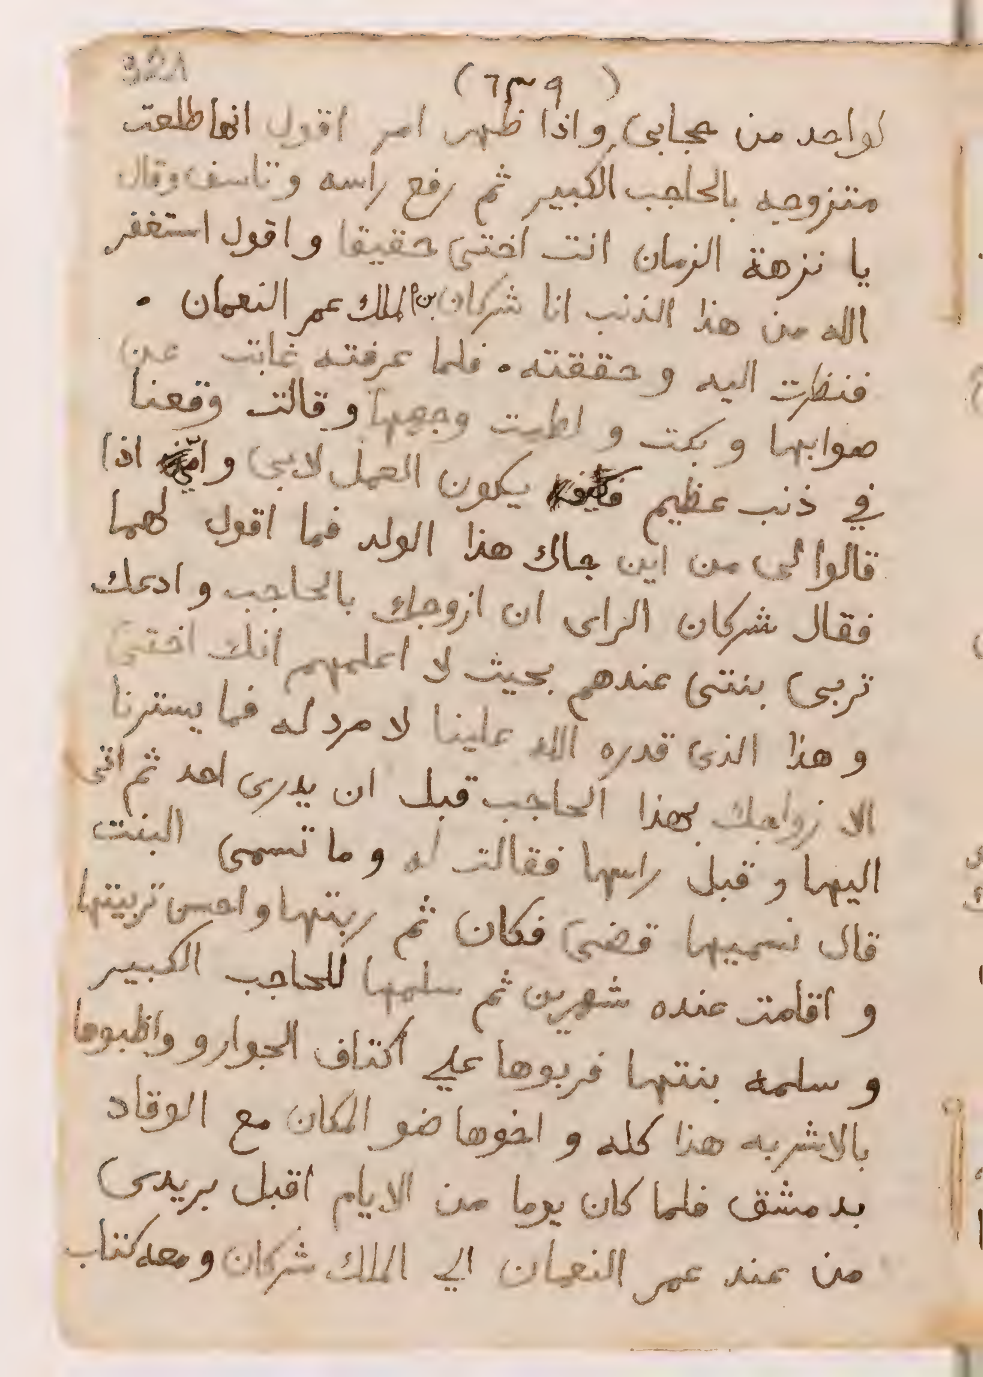 321
(٦٣٩)
لواحد من حجابي واذا ظهر امر اقول انها طلعت
متزوجه بالحاجب الكبير ثم رفع راسه وتاسف وقال
يا نزهة الزمان انت اختى حقيقا واقول استغفر
الله من هذا الذنب انا شركان بن الملك عمر النعمان .
فنظرت اليه و حققته . فلما عرفته غابت عن
صوابها و بكت و لطمت وجهها و قالت وقعنا
في ذنب عظيم يكون العمل لابى و اذا
قالوا لى من اين جاك هذا الولد فما اقول لهما
فقال شركان الراى ان ازوجك بالحاجب و ادعك
تربى بنتى عندهم بحيث لا اعلمهم انك اختى
و هذا الذى قدره الله علينا لا مرد له فما يسترنا
الا زواجك بهذا الحاجب قبل ان يدرى احد ثم اتى
اليها و قبل راسها فقالت له و ما تسمى البنت
قال نسميها قضى فكان ثم ربتها واحسن تربيتها
و اقامت عنده شهرين ثم سلمها للحاجب الكبير
و سلمه بنتها فربوها علي اكتاف الجوار و واظبوها
بالاشربه هذا كله و اخوها ضو المكان مع الوقاد
بدمشق فلما كان يوما من الايام اقبل بريدى
من عند عمر النعمان الي الملك شركان ومعه كتاب